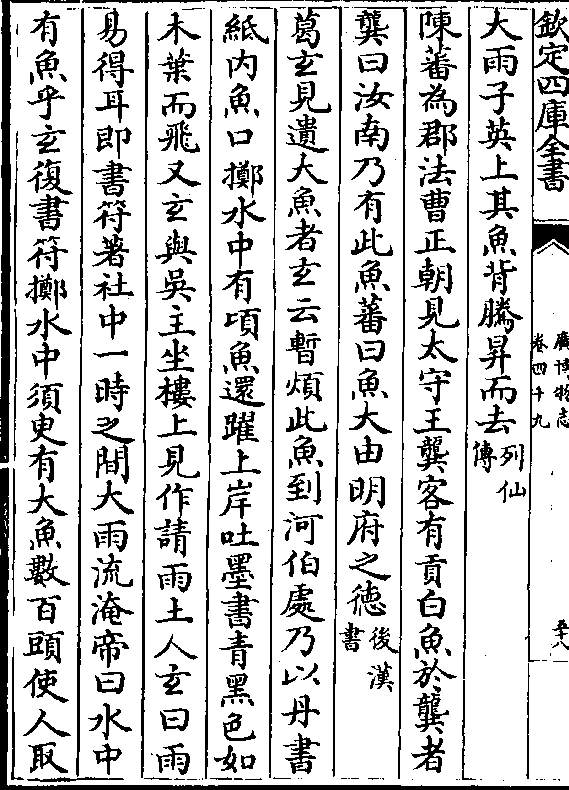 欽定四庫全書
廣博物志
卷四十九
五十八
大雨子英上其魚背騰昇而去列仙傳
陳蕃為郡法曹正朝見太守王龔客有貢白魚於龔者
龔曰汝南乃有此魚蕃曰魚大由明府之徳後漢書
葛玄見遺大魚者玄云暫煩此魚到河伯處乃以丹書
紙内魚口擲水中有頃魚還躍上岸吐墨書青黑色如
木葉而飛又玄與吳主坐樓上見作請雨土人玄曰雨
易得耳即書符著社中一時之間大雨流淹帝曰水中
有魚乎玄復書符擲水中須臾有大魚數百頭使人取